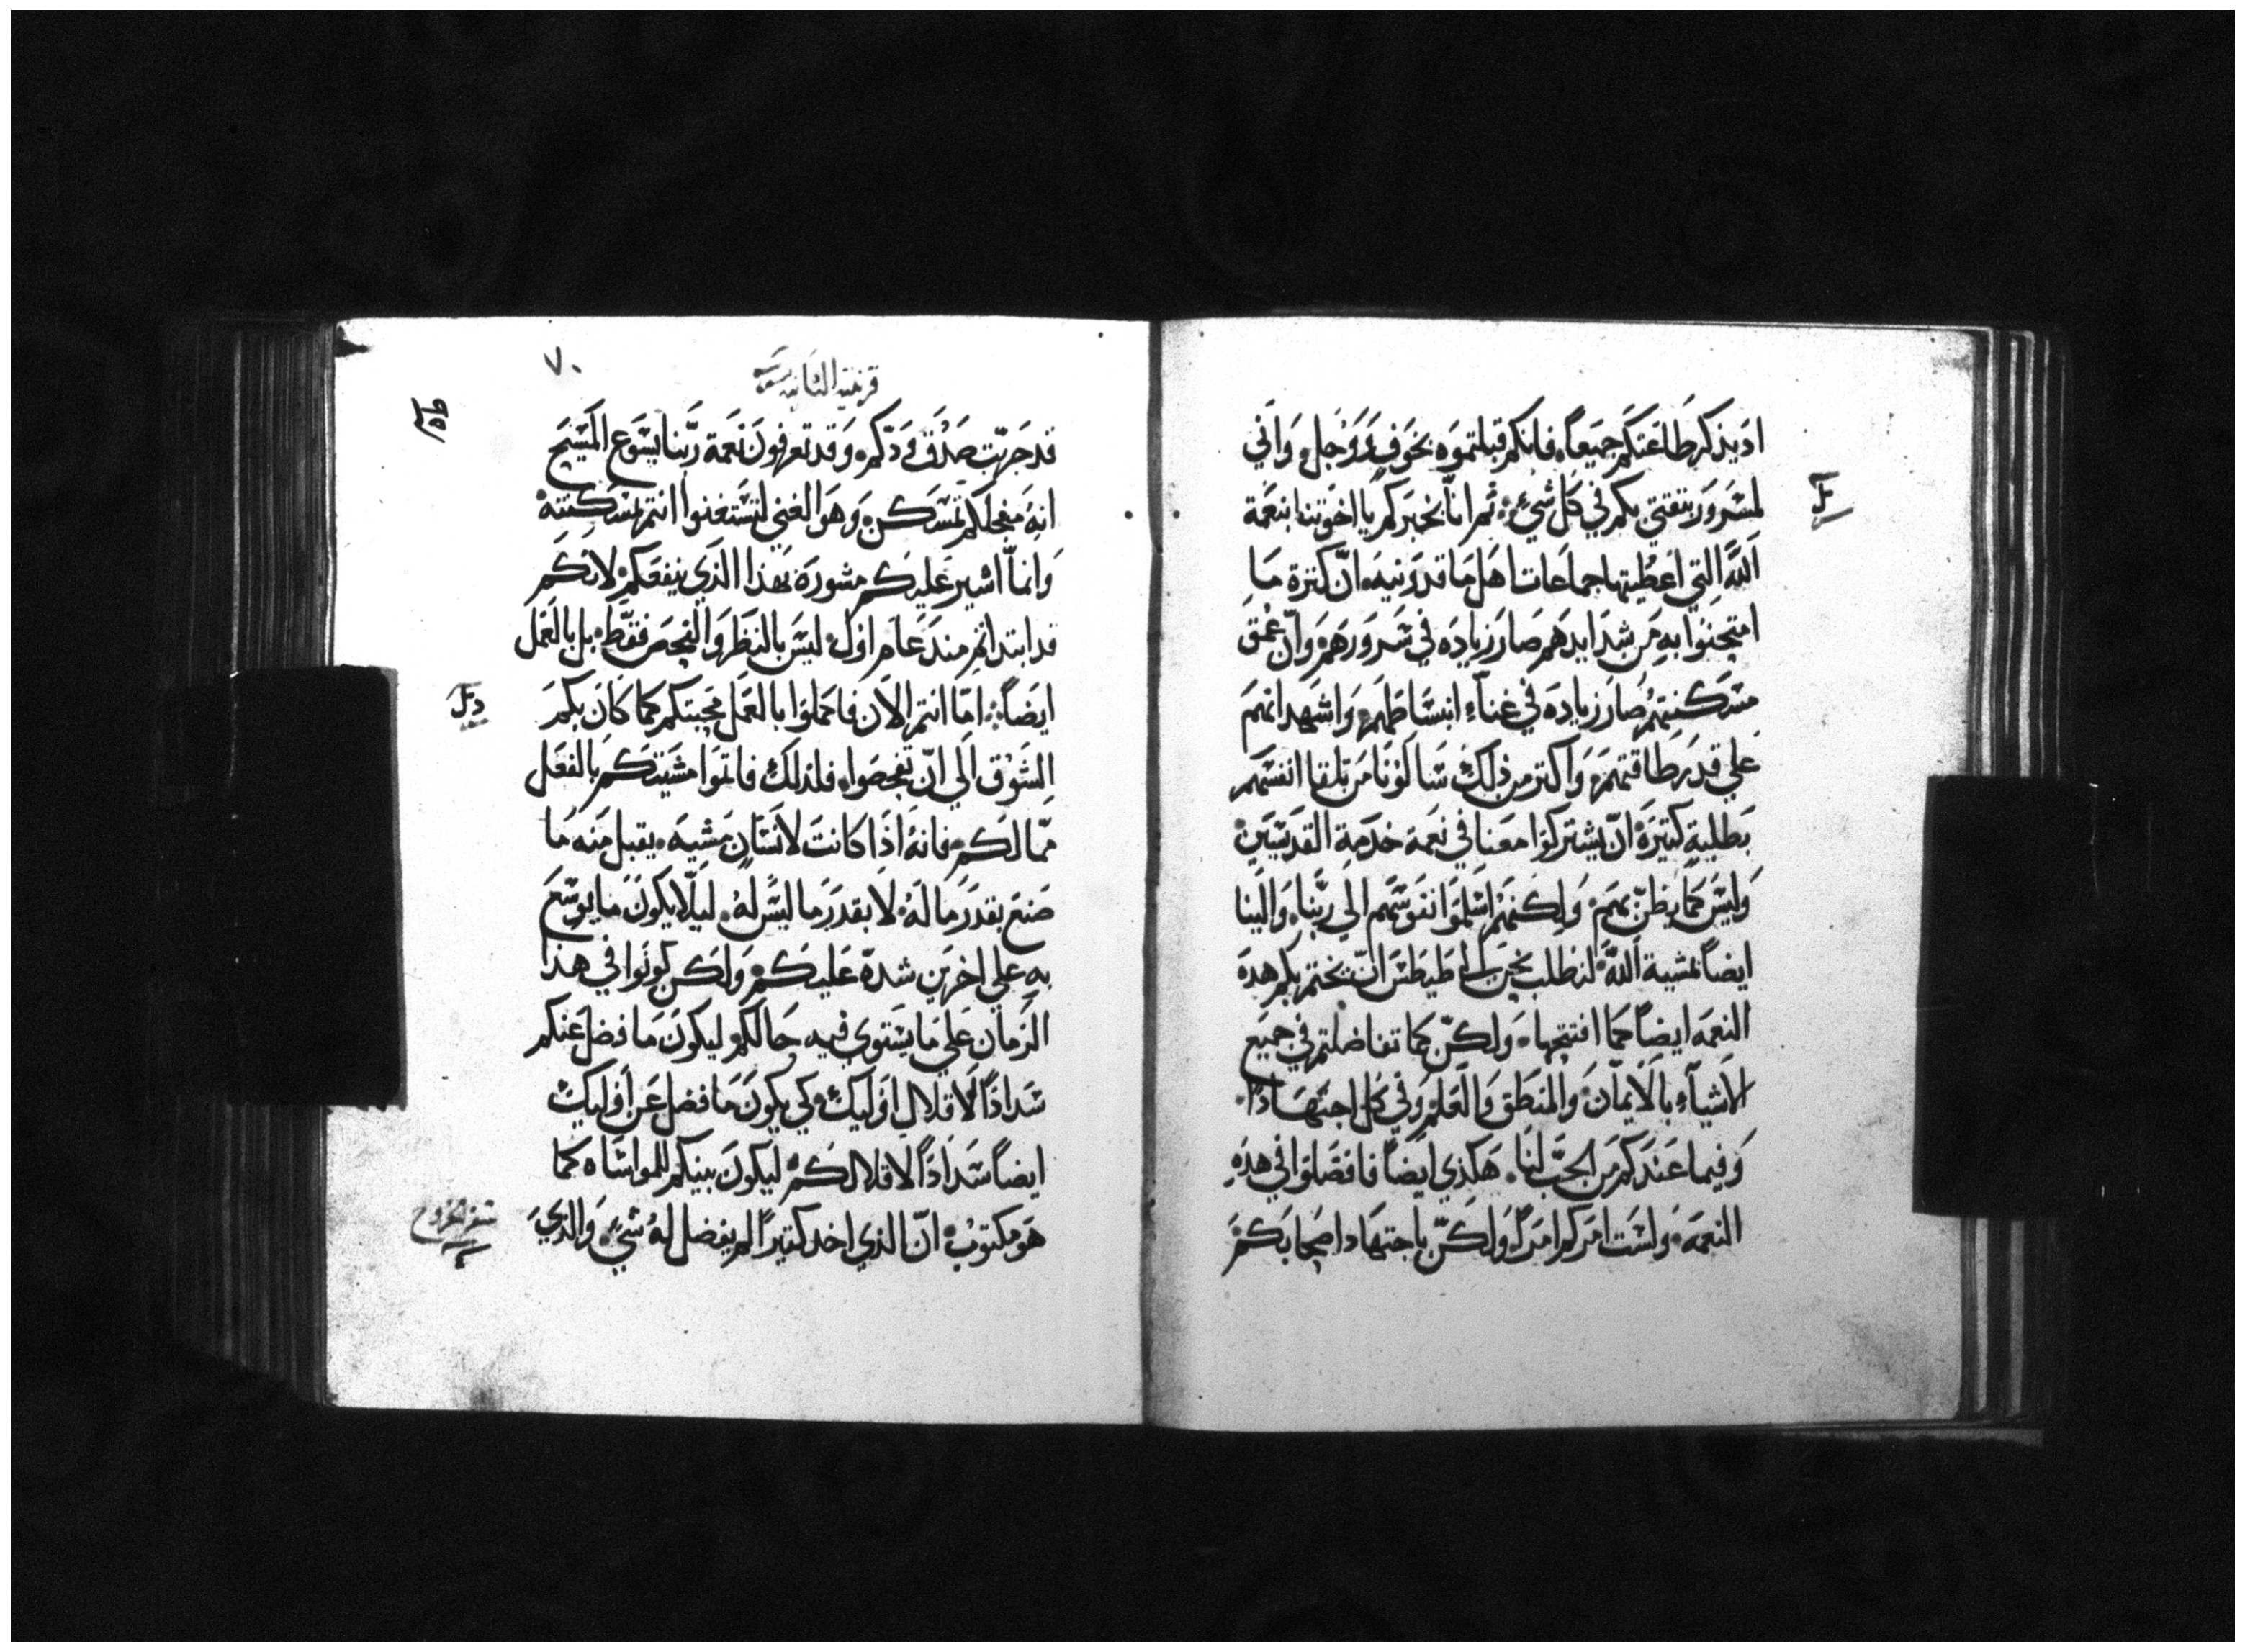 اديذكر طاعتكم جميعاً. فانكم قبلتموه بخوفٍ ووجلٍ واني
لمسرور بثقتي بكم في كل شيٍ. ثم انا نخبركم يا اخوتنا بنعمة
الله التي اعطيتها جماعات اهل ماقدونيه. انّ كترة ما
امتحنوا به من شدايدهم صار زياده في سرورهم وانّ عمق
مسكنتهم صار زيادة في غناء انبساطهم. واشهد انهم
علي قدر طاقتهم. واكتر من ذلك سالونا من تلقا انفسهم
بطلبةٍ كتيرة انّ يشتركوا معنا في نعمة خدمة القديسين
وليس كما يظنّ بهم. ولكنهم اسلموا نفوسهم الي ربّنا. والينا
ايضاً بمشية الله. لنطلب نحن الي طيطس انّ يختم بكم هده
النعمه ايضاً كما افتتحها. ولكنّ كما تفاضلتم في جميع
الاشياء بالايمان والمنطق والعلم وفي كل اجتهادً.
وفيما عندكم من الحبّ لنا. هكذي ايضاً فافضلوا في هذه
النعمه. ولست امركم امراً ولكنّ باجتهاد اصحابكم
ل
٧٠
قرنتيه الثانيه
قد جربت صدق ودّكم. وقد تعرفون نعمة ربّنا يسوع المسيح
انهُ من اجلكم تمسكن. وهو الغني لتستغنوا انتم بمسكنته.
وانماّ اشير عليكم مشورة بهذا الذي ينفعكم. لانكم
قد ابتداتم مند عام اول. ليس بالنظر والفحص فقط. بل بالعمل
ايضاً. امّا انتم الان فاكملوا بالعمل محبتكم كما كان بكم
الشوق الي انّ تفحصوا. فلذلك فاتموا مشيتكم بالفعل
ممّا لكم. فانهُ اذا كانت لانسان مشيه. يقبل منه ما
صنع بقدر ما لهُ. لا بقدر ما ليس لهُ. ليلّا يكون ما يوسع
به علي اخرين شدة عليكم. ولكن كونوا في هذا
الزمان علي ما يستوي فيه حالكم ليكون ما فضل عنكم
سداداً لاقلال اوليك وكي يكون ما فضل عن اوليك
ايضاً سداداً لاقلالكم. ليكون بينكم المواساه كما
هو مكتوب. انّ الذي اخد كتيراً لم يفضل لهُ شيٍ والذي
سفر الخروج